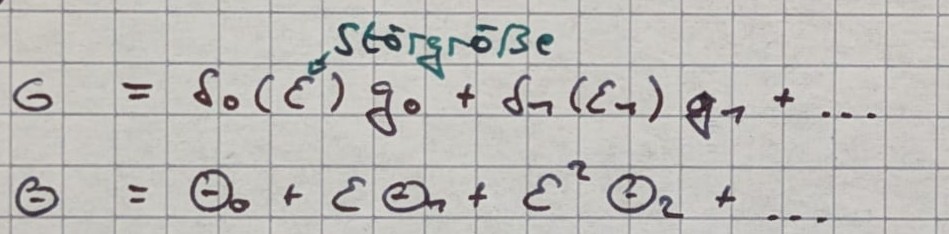 Störgröße
G = δ₀(ε) g₀ + δ₁(ε₁) g₁ + ...
Θ = Θ₀ + ε Θ₁ + ε² Θ₂ + ...